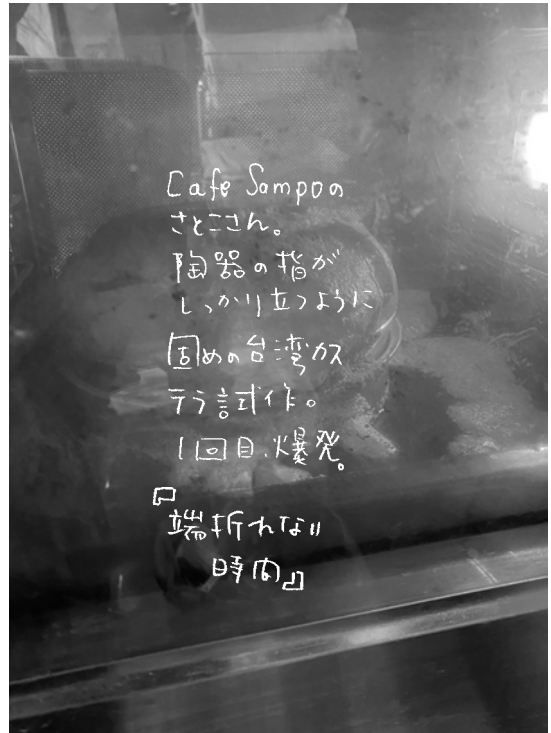 Cafe Sampoの
さとこさん。
陶器の指が
しっかり立つように
固めの台湾カス
テラ試作。
1回目、爆発。
『端折れない
時間』